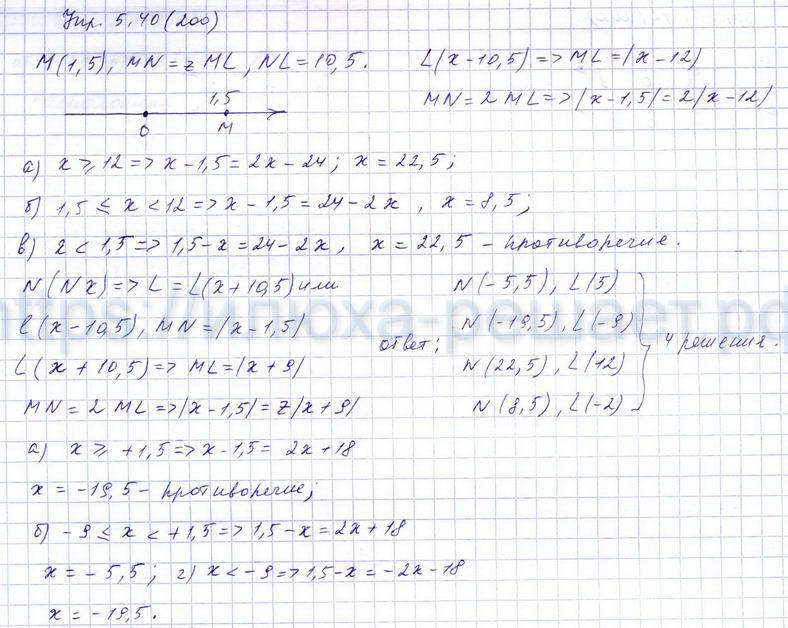 Упр. 5,40(200)
M(1,5), MN=2ML, NL=10,5.
1,5
0 M
а) x ≥ 12 => x-1,5=2x-24; x=22,5;
б) 1,5 ≤ x < 12 => x-1,5=24-2x, x=8,5;
в) x < 1,5 => 1,5-x=24-2x, x=22,5 - противоречие.
N(Nx) => L=L(x+10,5) или
L(x-10,5), MN=|x-1,5|
L(x+10,5) => ML=|x+9|
MN=2ML => |x-1,5|=2|x+9|
а) x ≥ +1,5 => x-1,5= 2x+18
x = -19,5 - противоречие;
б) -9 ≤ x < +1,5 => 1,5-x=2x+18
x = -5,5; г) x < -9 => 1,5-x=-2x-18
x = -19,5.
L(x-10,5) => ML=|x-12|
MN=2ML => |x-1,5|=2|x-12|
ответ:
N(-5,5), L(5)
N(-19,5), L(-9)
N(22,5), L(12)
N(8,5), L(-2)
4 решения.